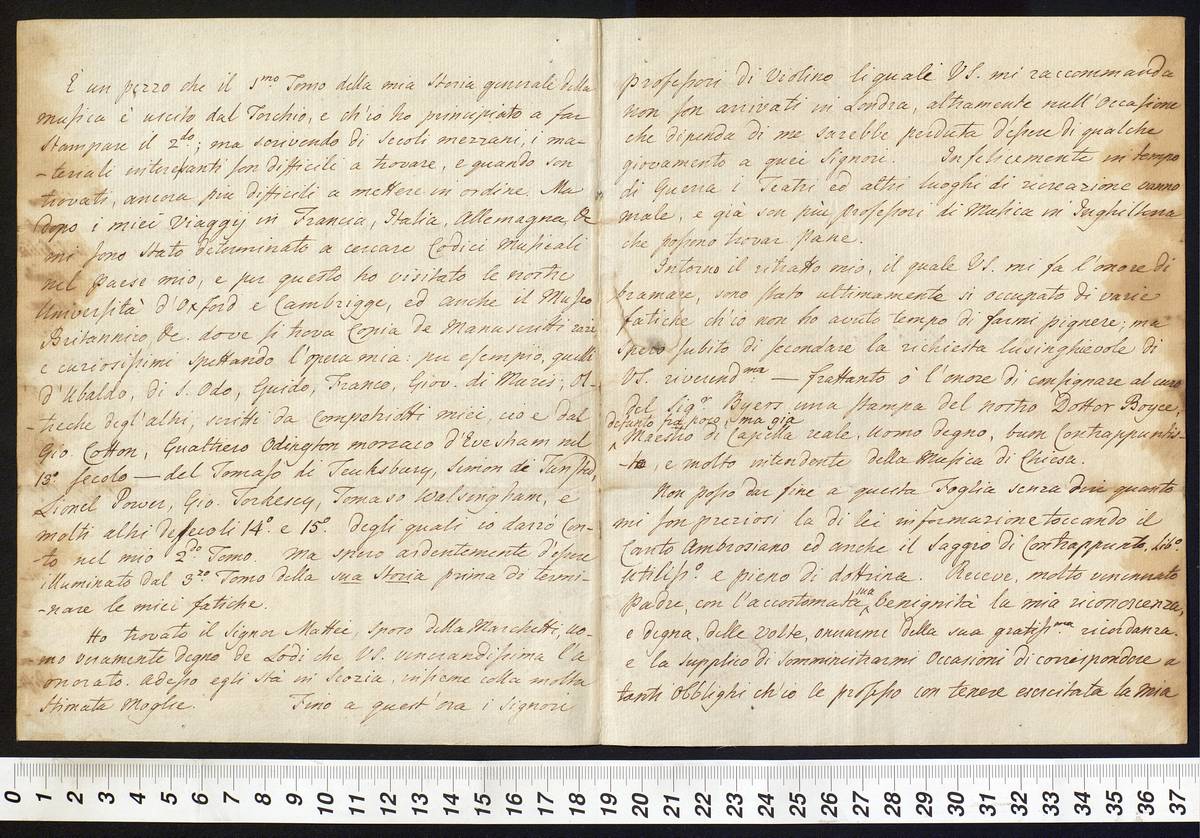 È un pezzo che il 1mo Tomo della mia Storia generali della
musica è uscito dal Torchio, e ch'io ho principiato a far
stampare il 2do; ma scrivendo di Secoli mezzani, i ma-
-teriali interessanti son difficili a trovare, e quando son
trovati, ancora piu difficili a mettere in ordine. Ma
dopo i miei Viaggij in Francia, Italia, Allemagna, &c
mi sono stato determinato a cercare Codici Musicali
nel Paese mio, e per questo ho visitato le nostre
Università d'Oxford e Cambrigge, ed anche il Museo
Britannico, &c. dove si trova Copia de Manuscritti rari
e curiosissimi spettando l'opera mia: per esempio, quelli
d'Ubaldo, di S. Odo, Guido, Franco, Giov. di Muris; ol-
-treche degl'altri, scritti da Compatriotti miei, cio e dal
Gio. Cotton, Gualthero Odington monaco d'Evesham nel
13o secolo — del Tomaso de Teuksbury, Simon de Tunsted,
Lionel Power, Gio. Torkesey, Tomaso Walsingham, e
molti altri de secoli 14o. e 15o. degli quali io darró Con-
-to nel mio 2do Tomo. Ma spero ardentemente d'essere
illuminato dal 3zo Tomo della sua Storia prima di termi-
-nare le miei fatiche.
Ho trovato il Signor Mattei, sposo della Marchetti, uo-
mo veramente degno de Lodi che VS. venerandissima l'à
onorato. Adesso egli stà in Scozia, insieme colla molta
stimata Moglie. Fino a quest'ora i Signori
Professori di Violino li quale VS. mi raccommanda
non son arrivati in Londra, altramente null'Occasione
che dipenda di me sarebbe perduta d'essere di qualche
giovamento a quei Signori. Infelicemente in tempo
di Guerra i Teatri ed altri luoghi di recreazione vanno
male, e già son più Professori di Musica in Inghilterra
che possono trovar Pane.
Intorno il ritratto mio, il quale VS. mi fa l'onore di
bramare, sono stato ultimamente si occupato di varie
fatiche ch'io non ho avuto tempo di farmi pignere; ma
spero subito di secondare la richiesta lusinghevole di
VS. riverendma — frattanto ò l'onore di consignare al cura
del Sigr. Byers una stampa del nostro Dottor Boyce,
defunto poco, ma già
Maestro di Capella reale, uomo degno, buon Contrappuntis-
-ta, e molto intendente della Musica di Chiesa.
Non posso dar fine a questa Foglia senza dire quanto
mi son preziosi la di lei informazione toccando il
Canto Ambrosiano ed anche il Saggio di Contrappunto, Libo.
utiliso. e pieno di dottrina. Receve, molto venerato
Padre, con l'accostomata sua benignità la mia riconoscenza,
e degna, delle volte, onorarmi della sua gratissma ricordanza.
e la supplico di somministrarmi Occasioni di correspondere a
tanti Obblighi ch'io le professo con tenere esercitata la mia